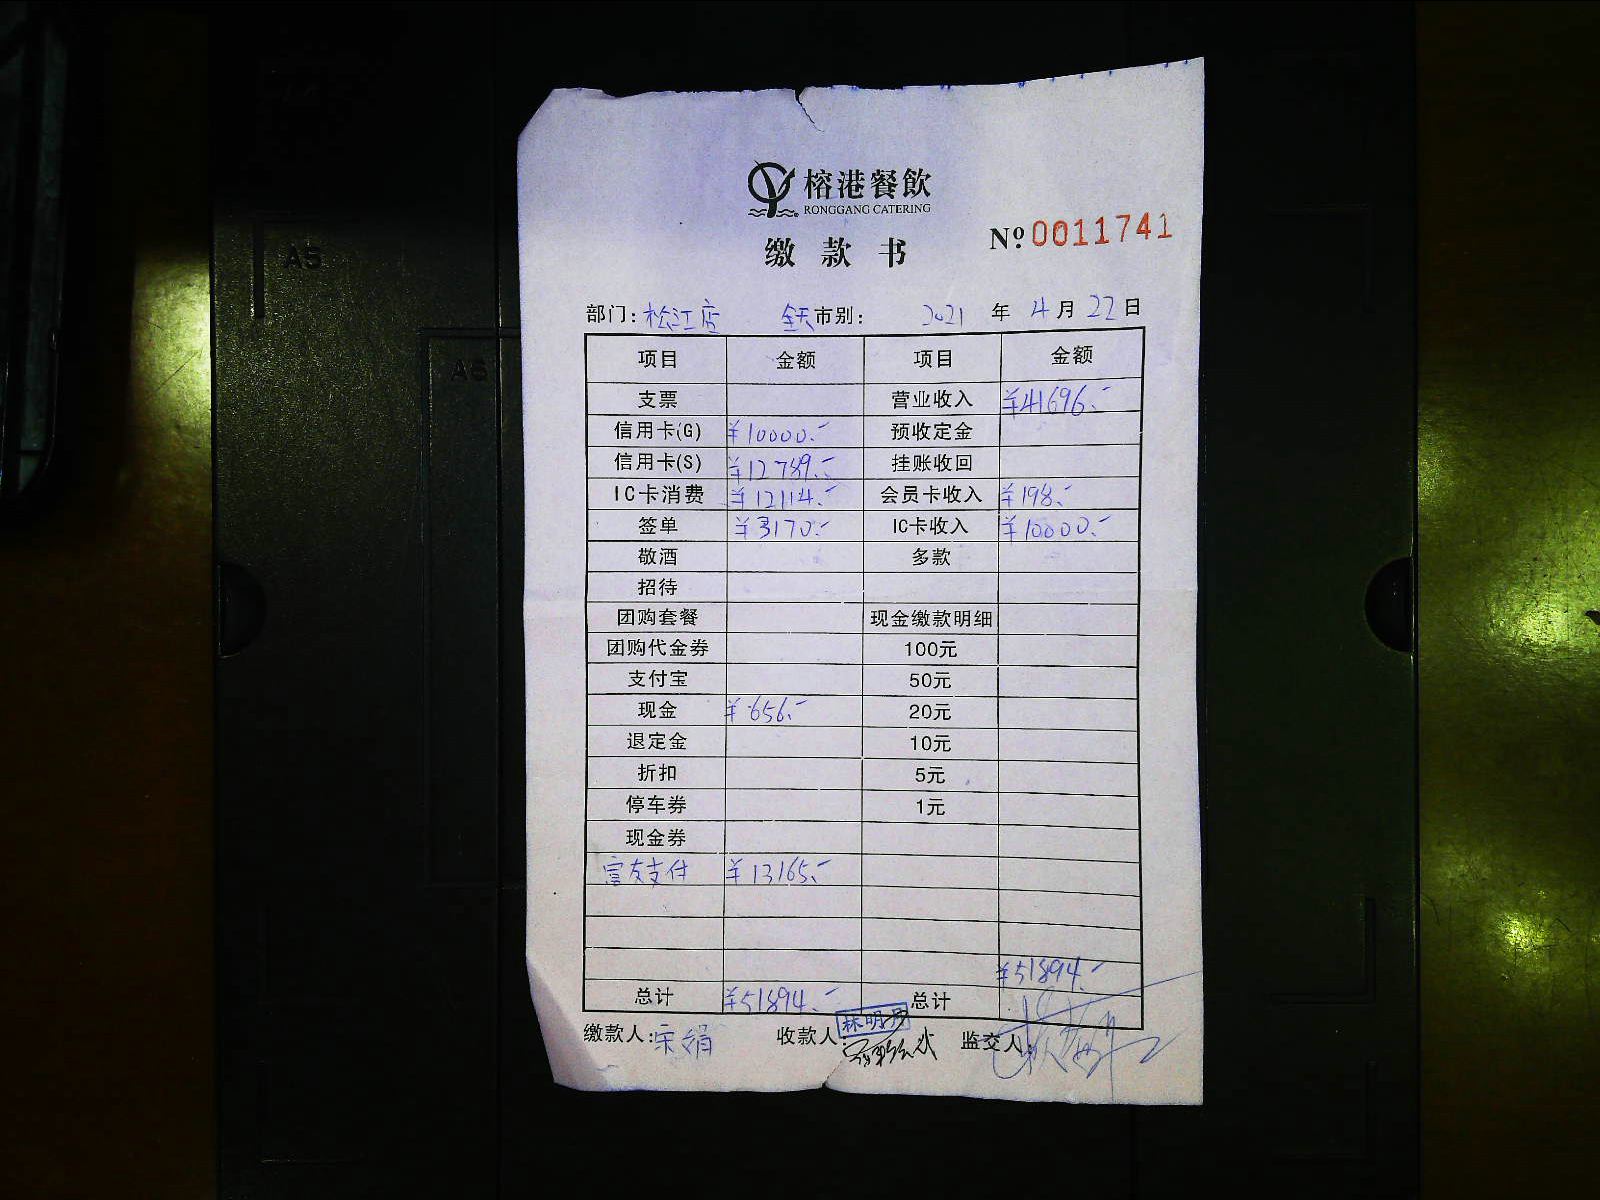 榕港餐飲
RONGGANG CATERING
缴款书
№ 0011741
部门: 松江店 全天市别: 2021 年 4 月 22 日
项目 金额 项目 金额
支票 营业收入 ¥41696.-
信用卡(G) ¥10000.- 预收定金
信用卡(S) ¥12789.- 挂账收回
IC卡消费 ¥12114.- 会员卡收入 ¥198.-
签单 ¥3170.- IC卡收入 ¥10000.-
敬酒 多款
招待
团购套餐 现金缴款明细
团购代金券 100元
支付宝 50元
现金 ¥656.- 20元
退定金 10元
折扣 5元
停车券 1元
现金券
富友支付 ¥13165.-
¥51894.-
总计 ¥51894.- 总计
缴款人: 宋娟 收款人: 监交人:
A5
A6